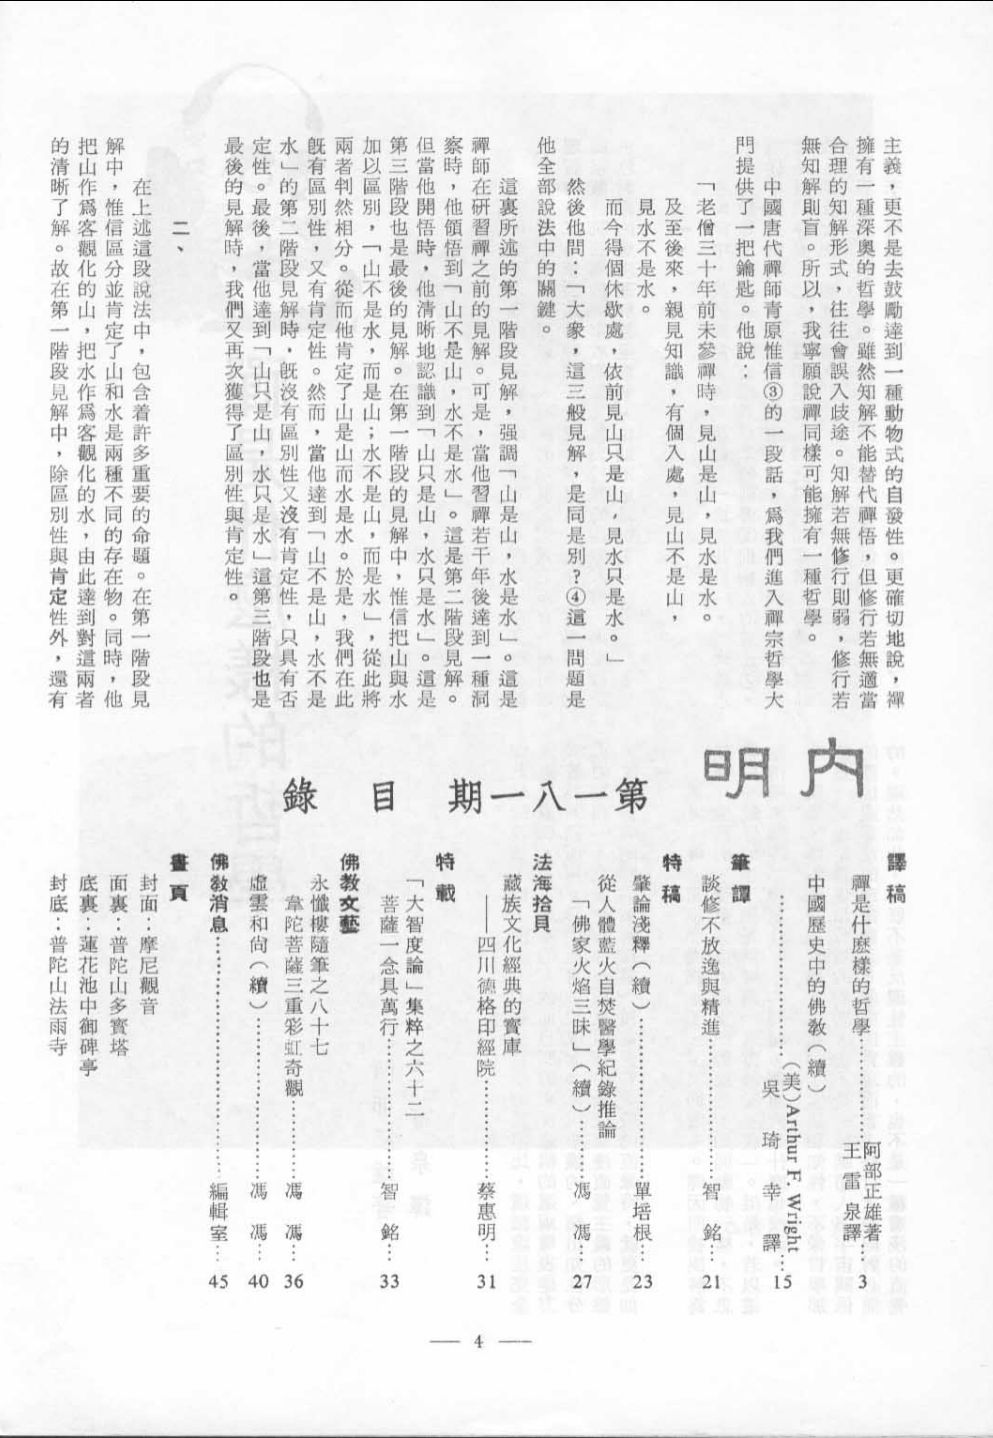 主義，更不是去鼓勵達到一種動物式的自發性。更確切地說，禪
擁有一種深奧的哲學。雖然知解不能替代禪悟，但修行若無適當
合理的知解形式，往往會誤入歧途。知解若無修行則弱，修行若
無知解則盲。所以，我寧願說禪同樣可能擁有一種哲學。
中國唐代禪師青原惟信③的一段話，爲我們進入禪宗哲學大
門提供了一把鑰匙。他說：
「老僧三十年前未參禪時，見山是山，見水是水。
及至後來，親見知識，有個入處，見山不是山，
見水不是水。
而今得個休歇處，依前見山只是山，見水只是水。」
然後他問：「大衆，這三般見解，是同是別？④這一問題是
他全部說法中的關鍵。
這裏所述的第一階段見解，强調「山是山，水是水」。這是
禪師在研習禪之前的見解。可是，當他習禪若干年後達到一種洞
察時，他領悟到「山不是山，水不是水」。這是第二階段見解。
但當他開悟時，他清晰地認識到「山只是山，水只是水」。這是
第三階段也是最後的見解。在第一階段的見解中，惟信把山與水
加以區別，「山不是水，而是山；水不是山，而是水」，從此將
兩者判然相分。從而他肯定了山是山而水是水。於是，我們在此
旣有區別性，又有肯定性。然而，當他達到「山不是山，水不是
水」的第二階段見解時，旣沒有區別性又沒有肯定性，只具有否
定性。最後，當他達到「山只是山，水只是水」這第三階段也是
最後的見解時，我們又再次獲得了區別性與肯定性。
二、
在上述這段說法中，包含着許多重要的命題。在第一階段見
解中，惟信區分並肯定了山和水是兩種不同的存在物。同時，他
把山作爲客觀化的山，把水作爲客觀化的水，由此達到對這兩者
的清晰了解。故在第一階段見解中，除區別性與肯定性外，還有
內明
第一八一期 目錄
譯稿
禪是什麽樣的哲學……阿部正雄著 王雷泉譯…3
中國歷史中的佛教（續）
……(美)Arthur F. Wright 吳琦幸 譯 15
筆譚
談修不放逸與精進……智 銘…21
特稿
肇論淺釋（續）……單培根…23
從人體藍火自焚醫學紀錄推論
「佛家火焰三昧」（續）……馮 馮…27
法海拾貝
藏族文化經典的寶庫
——四川德格印經院……蔡惠明…31
特載
「大智度論」集粹之六十二
菩薩一念具萬行……智 銘…33
佛教文藝
永懺樓隨筆之八十七
韋陀菩薩三重彩虹奇觀……馮 馮…36
虛雲和尙（續）……馮 馮…40
佛教消息……編輯室…45
畫頁
封面：摩尼觀音
面裏：普陀山多寶塔
底裏：蓮花池中御碑亭
封底：普陀山法雨寺
— 4 —